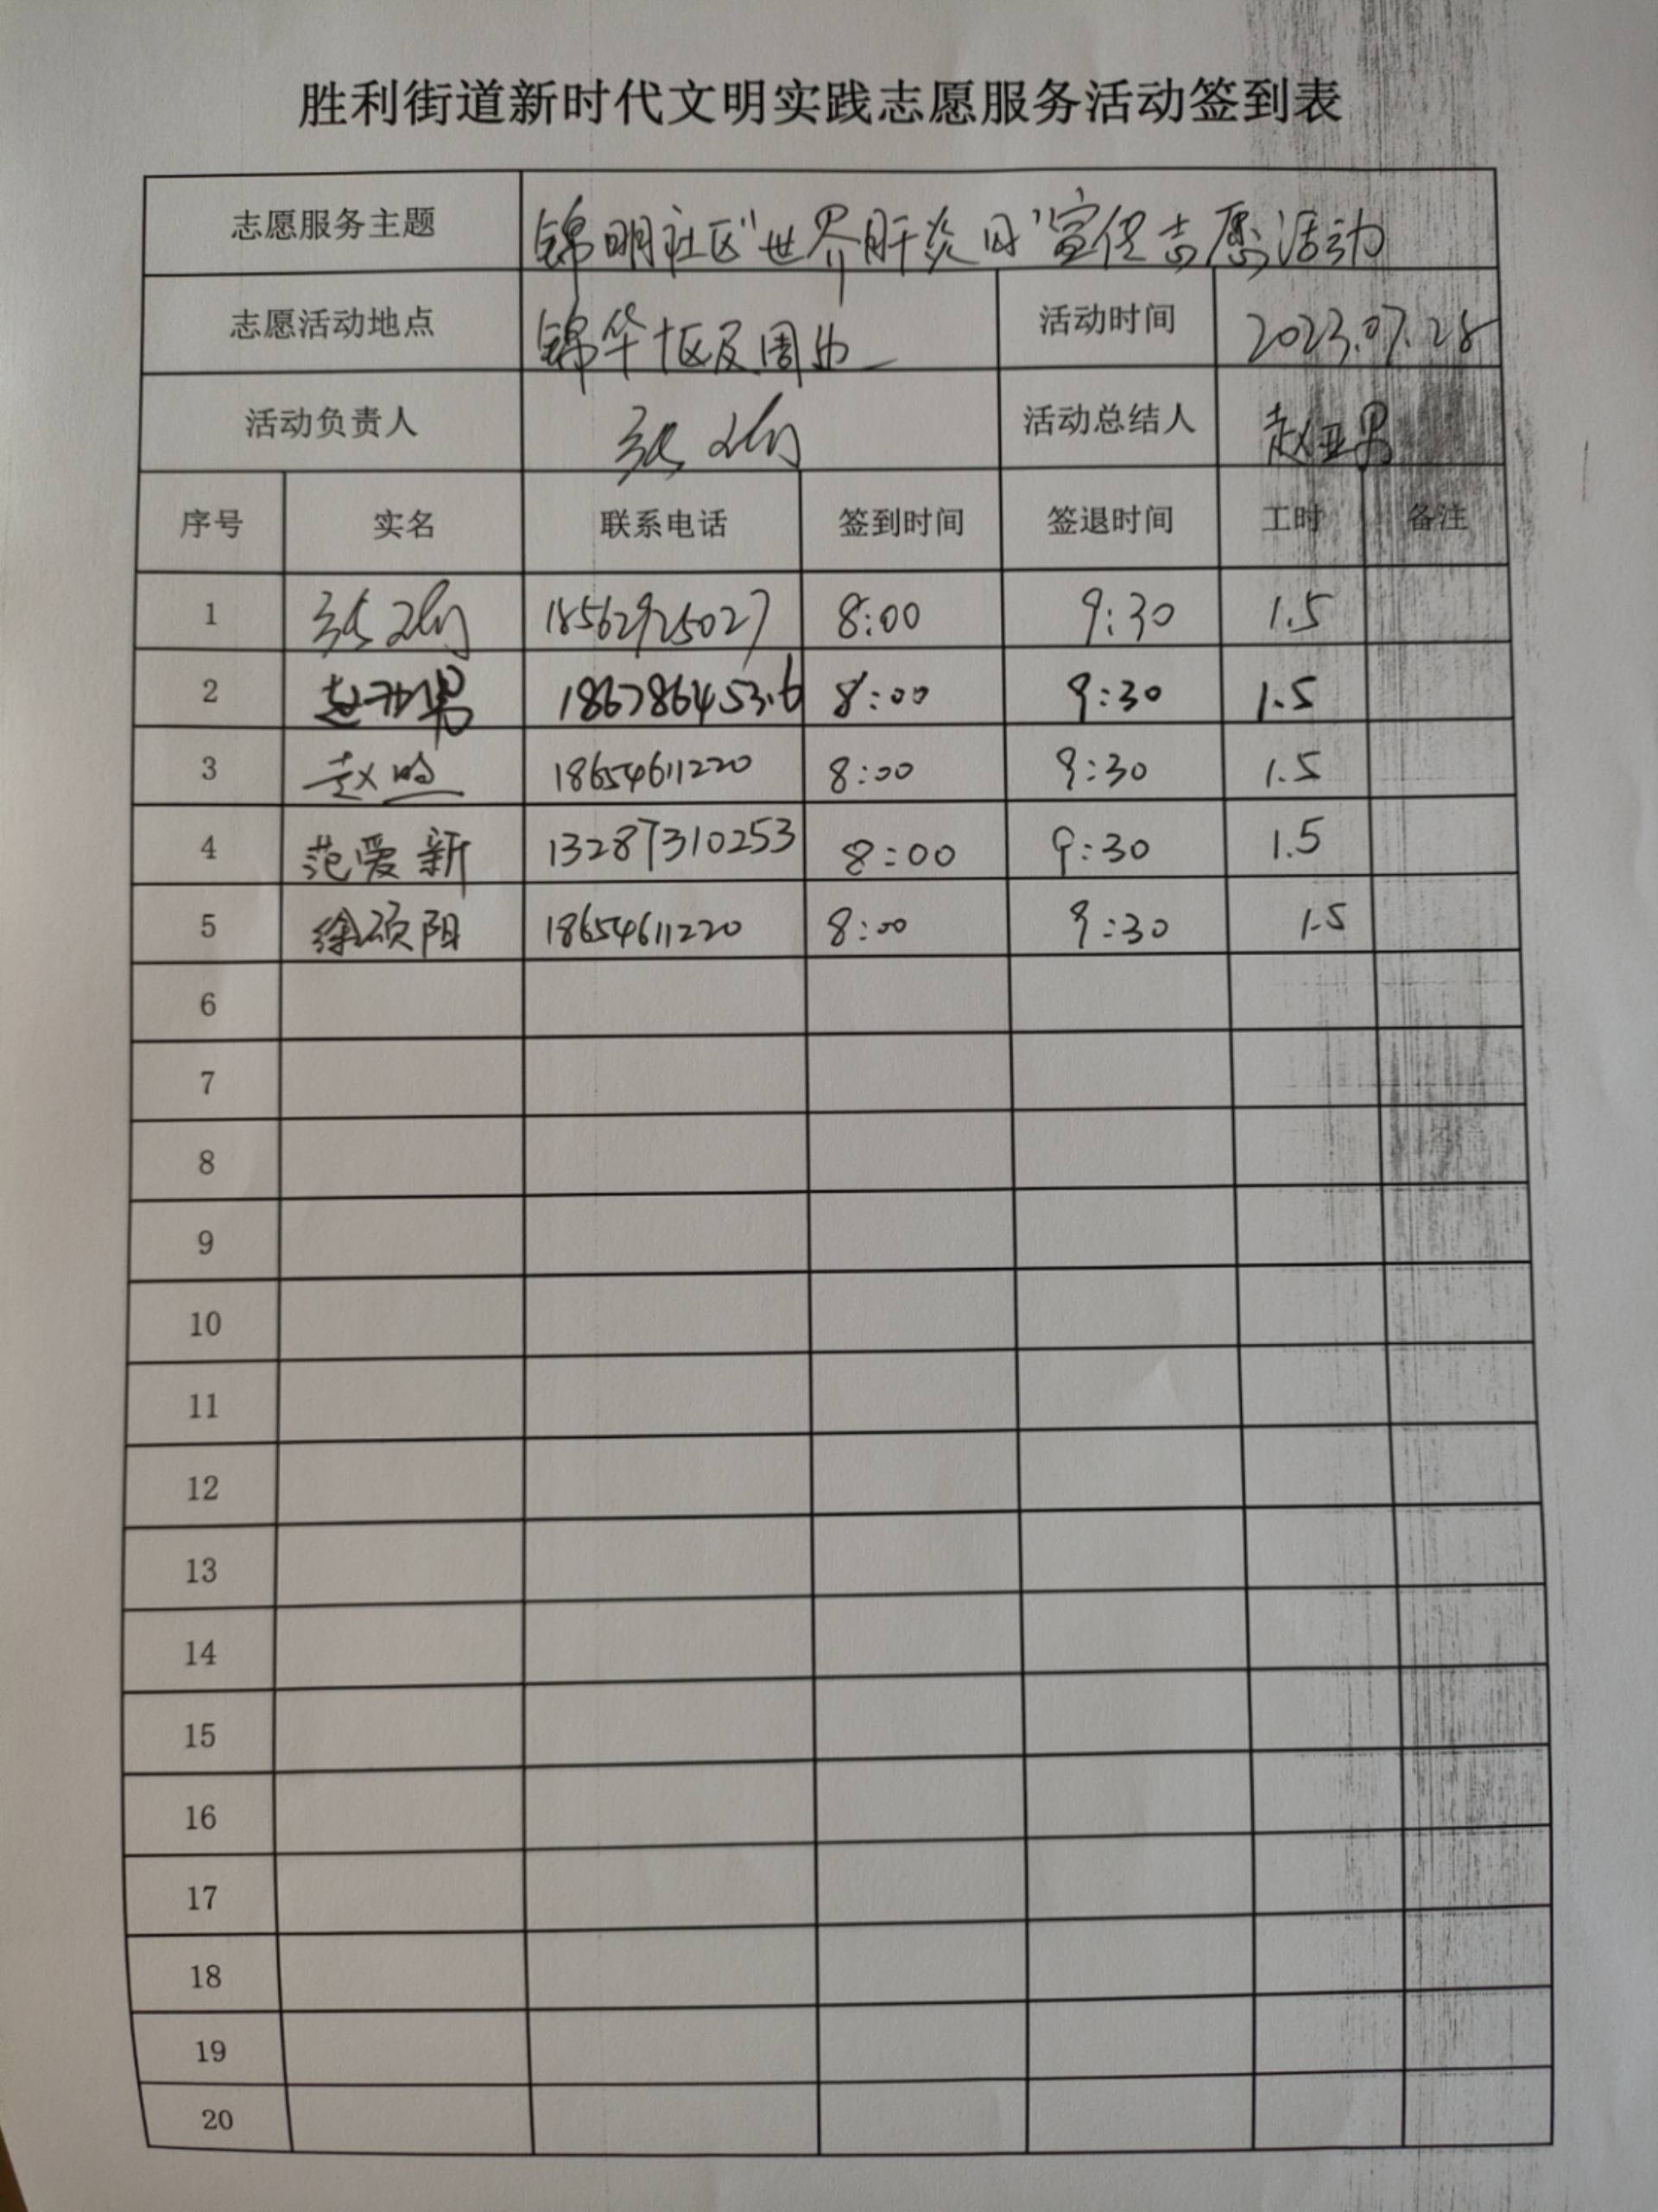 胜利街道新时代文明实践志愿服务活动签到表
志愿服务主题 锦明社区"世界肝炎日"宣传志愿活动
志愿活动地点 锦华七区及周边 活动时间 2023.07.28
活动负责人 张 活动总结人 赵亚男
序号 实名 联系电话 签到时间 签退时间 工时 备注
1 张 18562925027 8:00 9:30 1.5
2 赵亚男 8:00 9:30 1.5
3 赵 18654611220 8:00 9:30 1.5
4 范爱新 13287310253 8:00 9:30 1.5
5 徐硕阳 18654611220 8:00 9:30 1.5
6
7
8
9
10
11
12
13
14
15
16
17
18
19
20